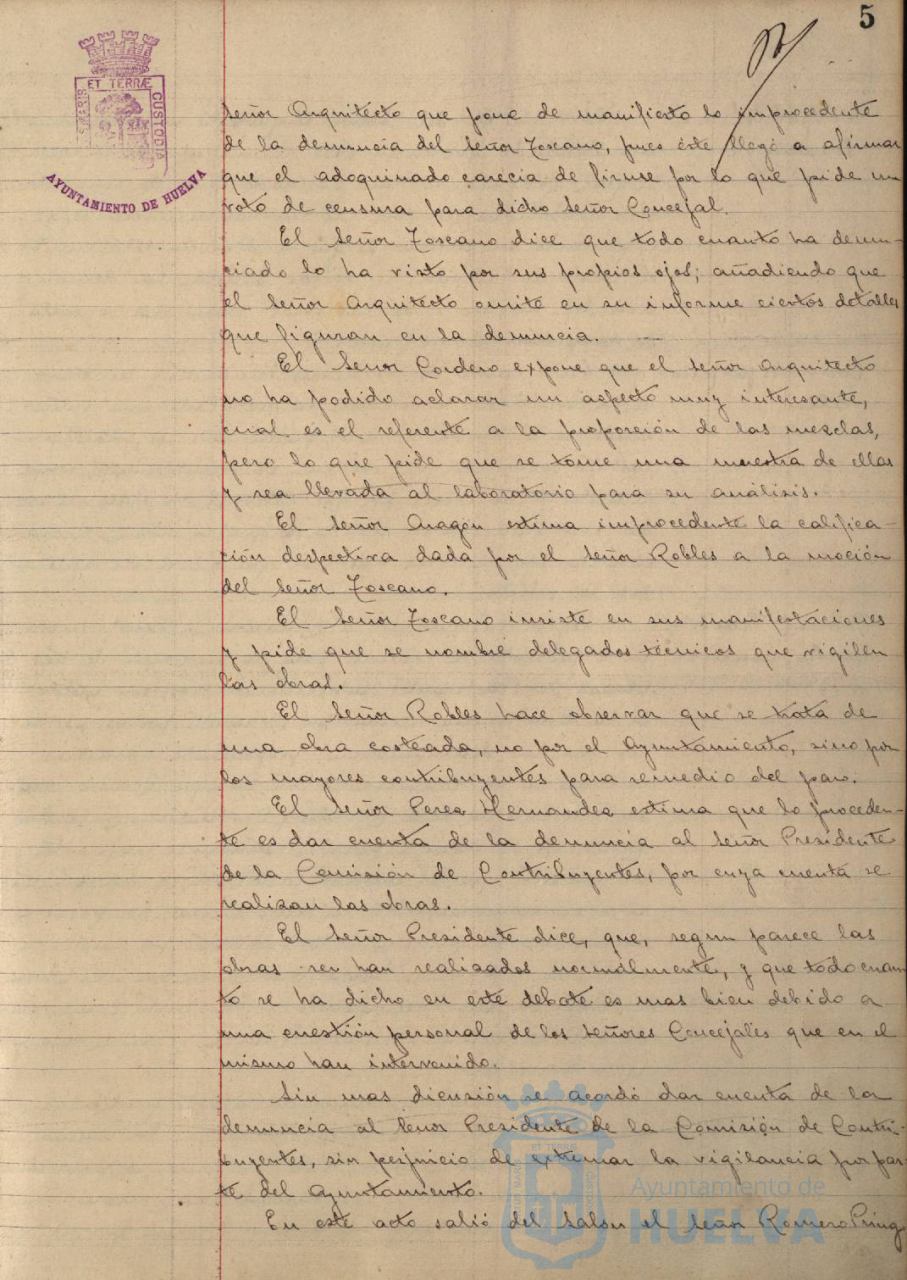 5
ET TERRÆ
CUSTODIA
AYUNTAMIENTO DE HUELVA
señor Arquitecto que pone de manifiesto lo improcedente
de la denuncia del señor Toscano, pues éste llegó a afirmar
que el adoquinado carecia de firme por lo que pide un
voto de censura para dicho señor Concejal.
El señor Toscano dice que todo cuanto ha denun-
ciado lo ha visto por sus propios ojos; añadiendo que
el señor Arquitecto omite en su informe ciertos detalles
que figuran en la denuncia.
El señor Cordero expone que el señor Arquitecto
no ha podido aclarar un aspecto muy interesante,
cual es el referente a la proporción de las mezclas,
pero lo que pide que se tome una muestra de ellas
y sea llevada al laboratorio para su análisis.
El señor Aragón estima improcedente la califica-
ción despectiva dada por el señor Robles a la moción
del señor Toscano.
El señor Toscano insiste en sus manifestaciones
y pide que se nombre delegados técnicos que vigilen
las obras.
El señor Robles hace observar que se trata de
una obra costeada, no por el Ayuntamiento, sino por
los mayores contribuyentes para remedio del paro.
El señor Perea Hernandez estima que lo proceden-
te es dar cuenta de la denuncia al señor Presidente
de la Comisión de Contribuyentes, por cuya cuenta se
realizan las obras.
El señor Presidente dice, que, segun parece las
obras ser han realizados normalmente, y que todo cuan-
to se ha dicho en este debate es mas bien debido a
una cuestión personal de los señores Concejales que en el
mismo han intervenido.
Sin mas dicusión se acordó dar cuenta de la
denuncia al señor Presidente de la Comisión de Contri-
buyentes, sin perjuicio de extremar la vigilancia por par-
te del Ayuntamiento.
En este acto salió del salon el señor Romero
Ayuntamiento de
HUELVA